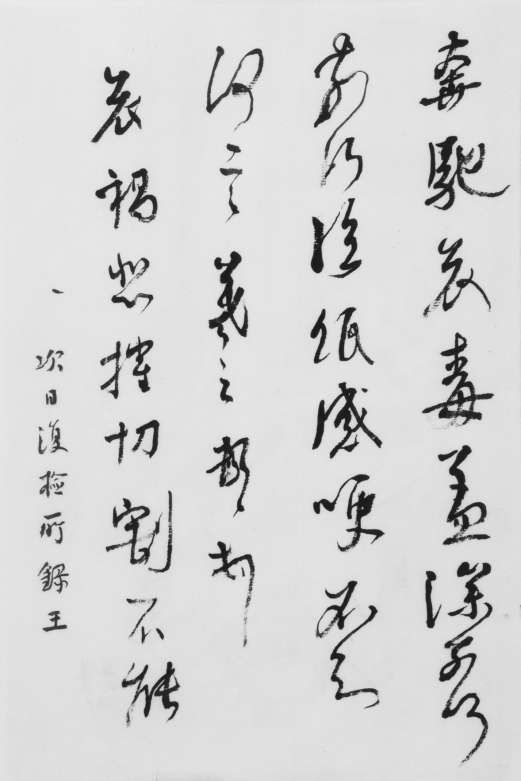 奔馳哀毒益深奈何
奈何臨紙感哽不知
何言羲之頓首頓首
哀禍悲摧切割不能
次日復檢所錄王